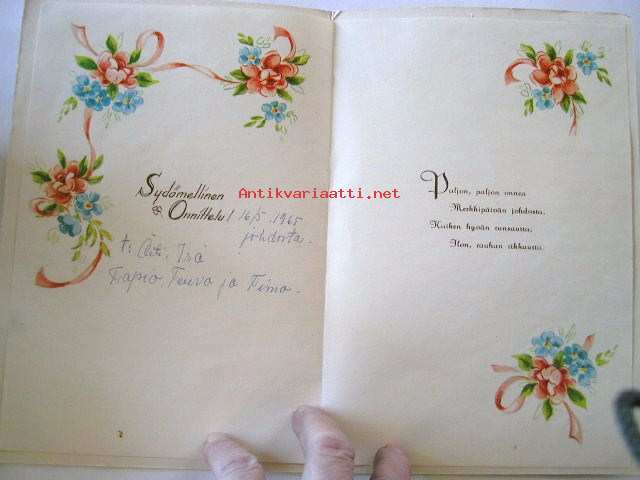 Sydämellinen
Onnittelu! 16/5. 1965
johdosta.
t. Äiti, Isä
Tapio, Teuvo ja Timo.
Paljon, paljon onnea
Merkkipäivän johdosta,
Kaiken hyvän runsautta,
Ilon, rauhan rikkautta.
Antikvariaatti.net